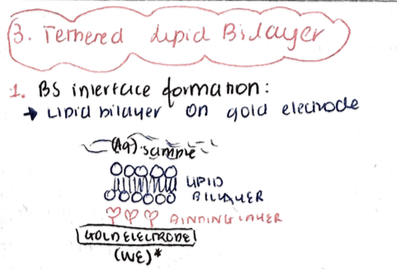 3. Tethered Lipid Bilayer
1. BS interface formation:
→ Lipid bilayer on gold electrode
(Aq) sample
LIPID
BILLAYER
BINDING LAYER
GOLD ELECTRODE
(WE)*